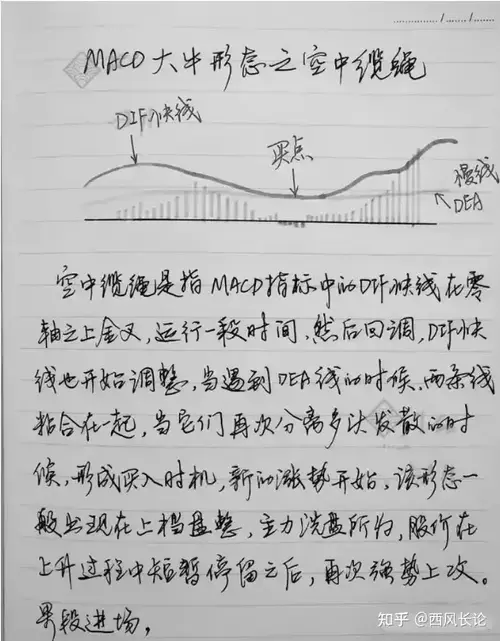 MACD大牛形态之空中缆绳
DIF快线
买点
慢线
DEA
空中缆绳是指MACD指标中的DIF快线在零
轴之上金叉,运行一段时间,然后回调,DIF快
线也开始调整,当遇到DEA线的时候,两条线
粘合在一起,当它们再次分离多头发散的时
候,形成买入时机,新的涨势开始,该形态一
般出现在上档盘整,主力洗盘所为,股价在
上升过程中短暂停留之后,再次强势上攻。
果段进场,
知乎 @西风长论